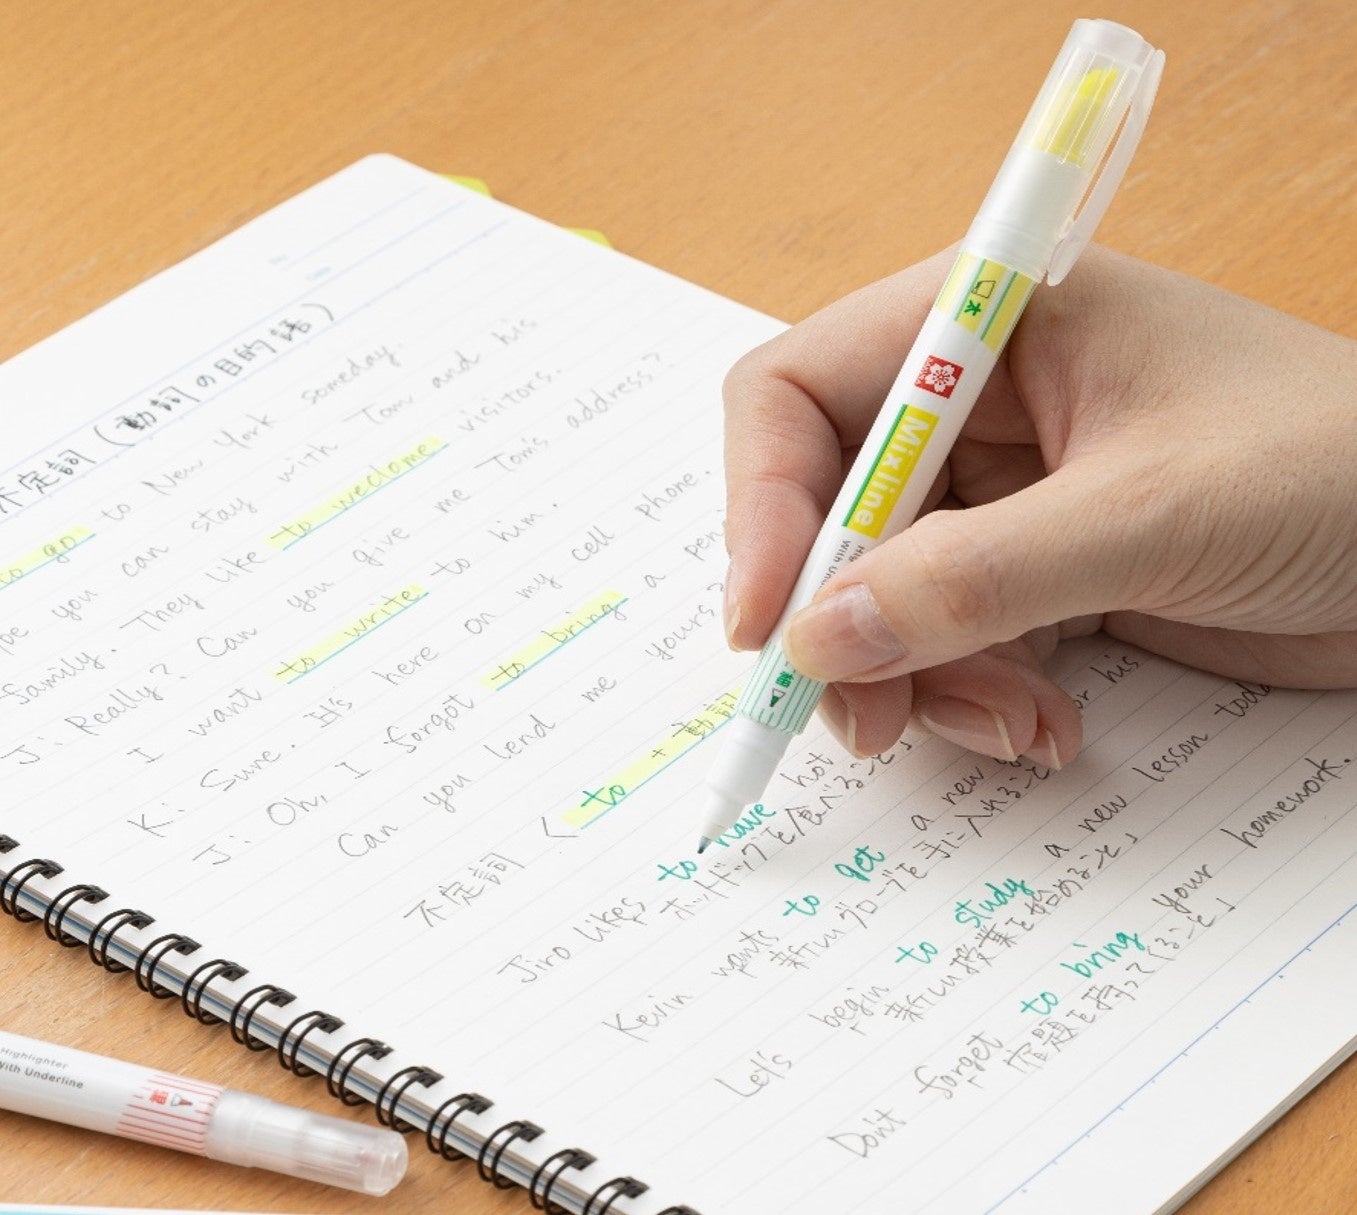 不定詞(動詞の目的語)
to go to New York someday.
pe you can stay with Tom and his
family. They like to weclome visitors.
J: Really? Can you give me Tom's address?
I want to write to him.
K: Sure. It's here on my cell phone.
J: Oh, I forgot to bring a pen
Can you lend me yours?
不定詞:〈to + 動詞
Jiro likes to have hot
ホットドッグを食べること」
Kevin wants to get a new for his
新しいグローブを手に入れること
Let's begin to study a new lesson toda
「新しい授業を始めること」
Don't forget to bring your homework.
「宿題を持ってくること」
太
Mixline
With Un
細
Highlighter
With Underline